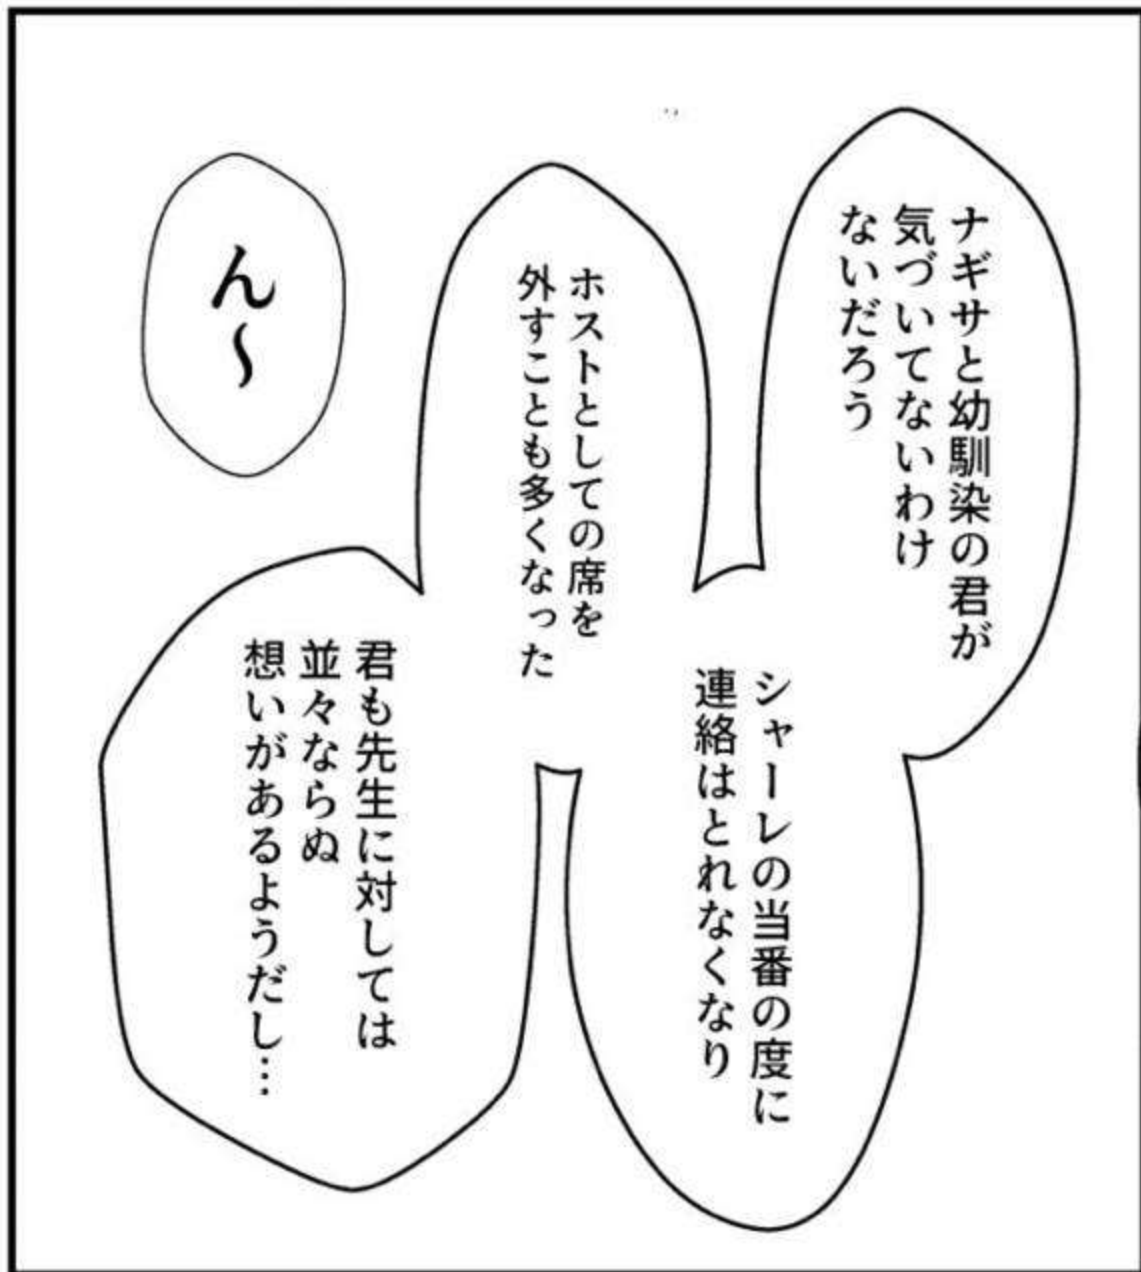 ナギサと幼馴染の君が
気づいてないわけ
ないだろう
シャーレの当番の度に
連絡はとれなくなり
ホストとしての席を
外すことも多くなった
君も先生に対しては
並々ならぬ
想いがあるようだし…
ん～